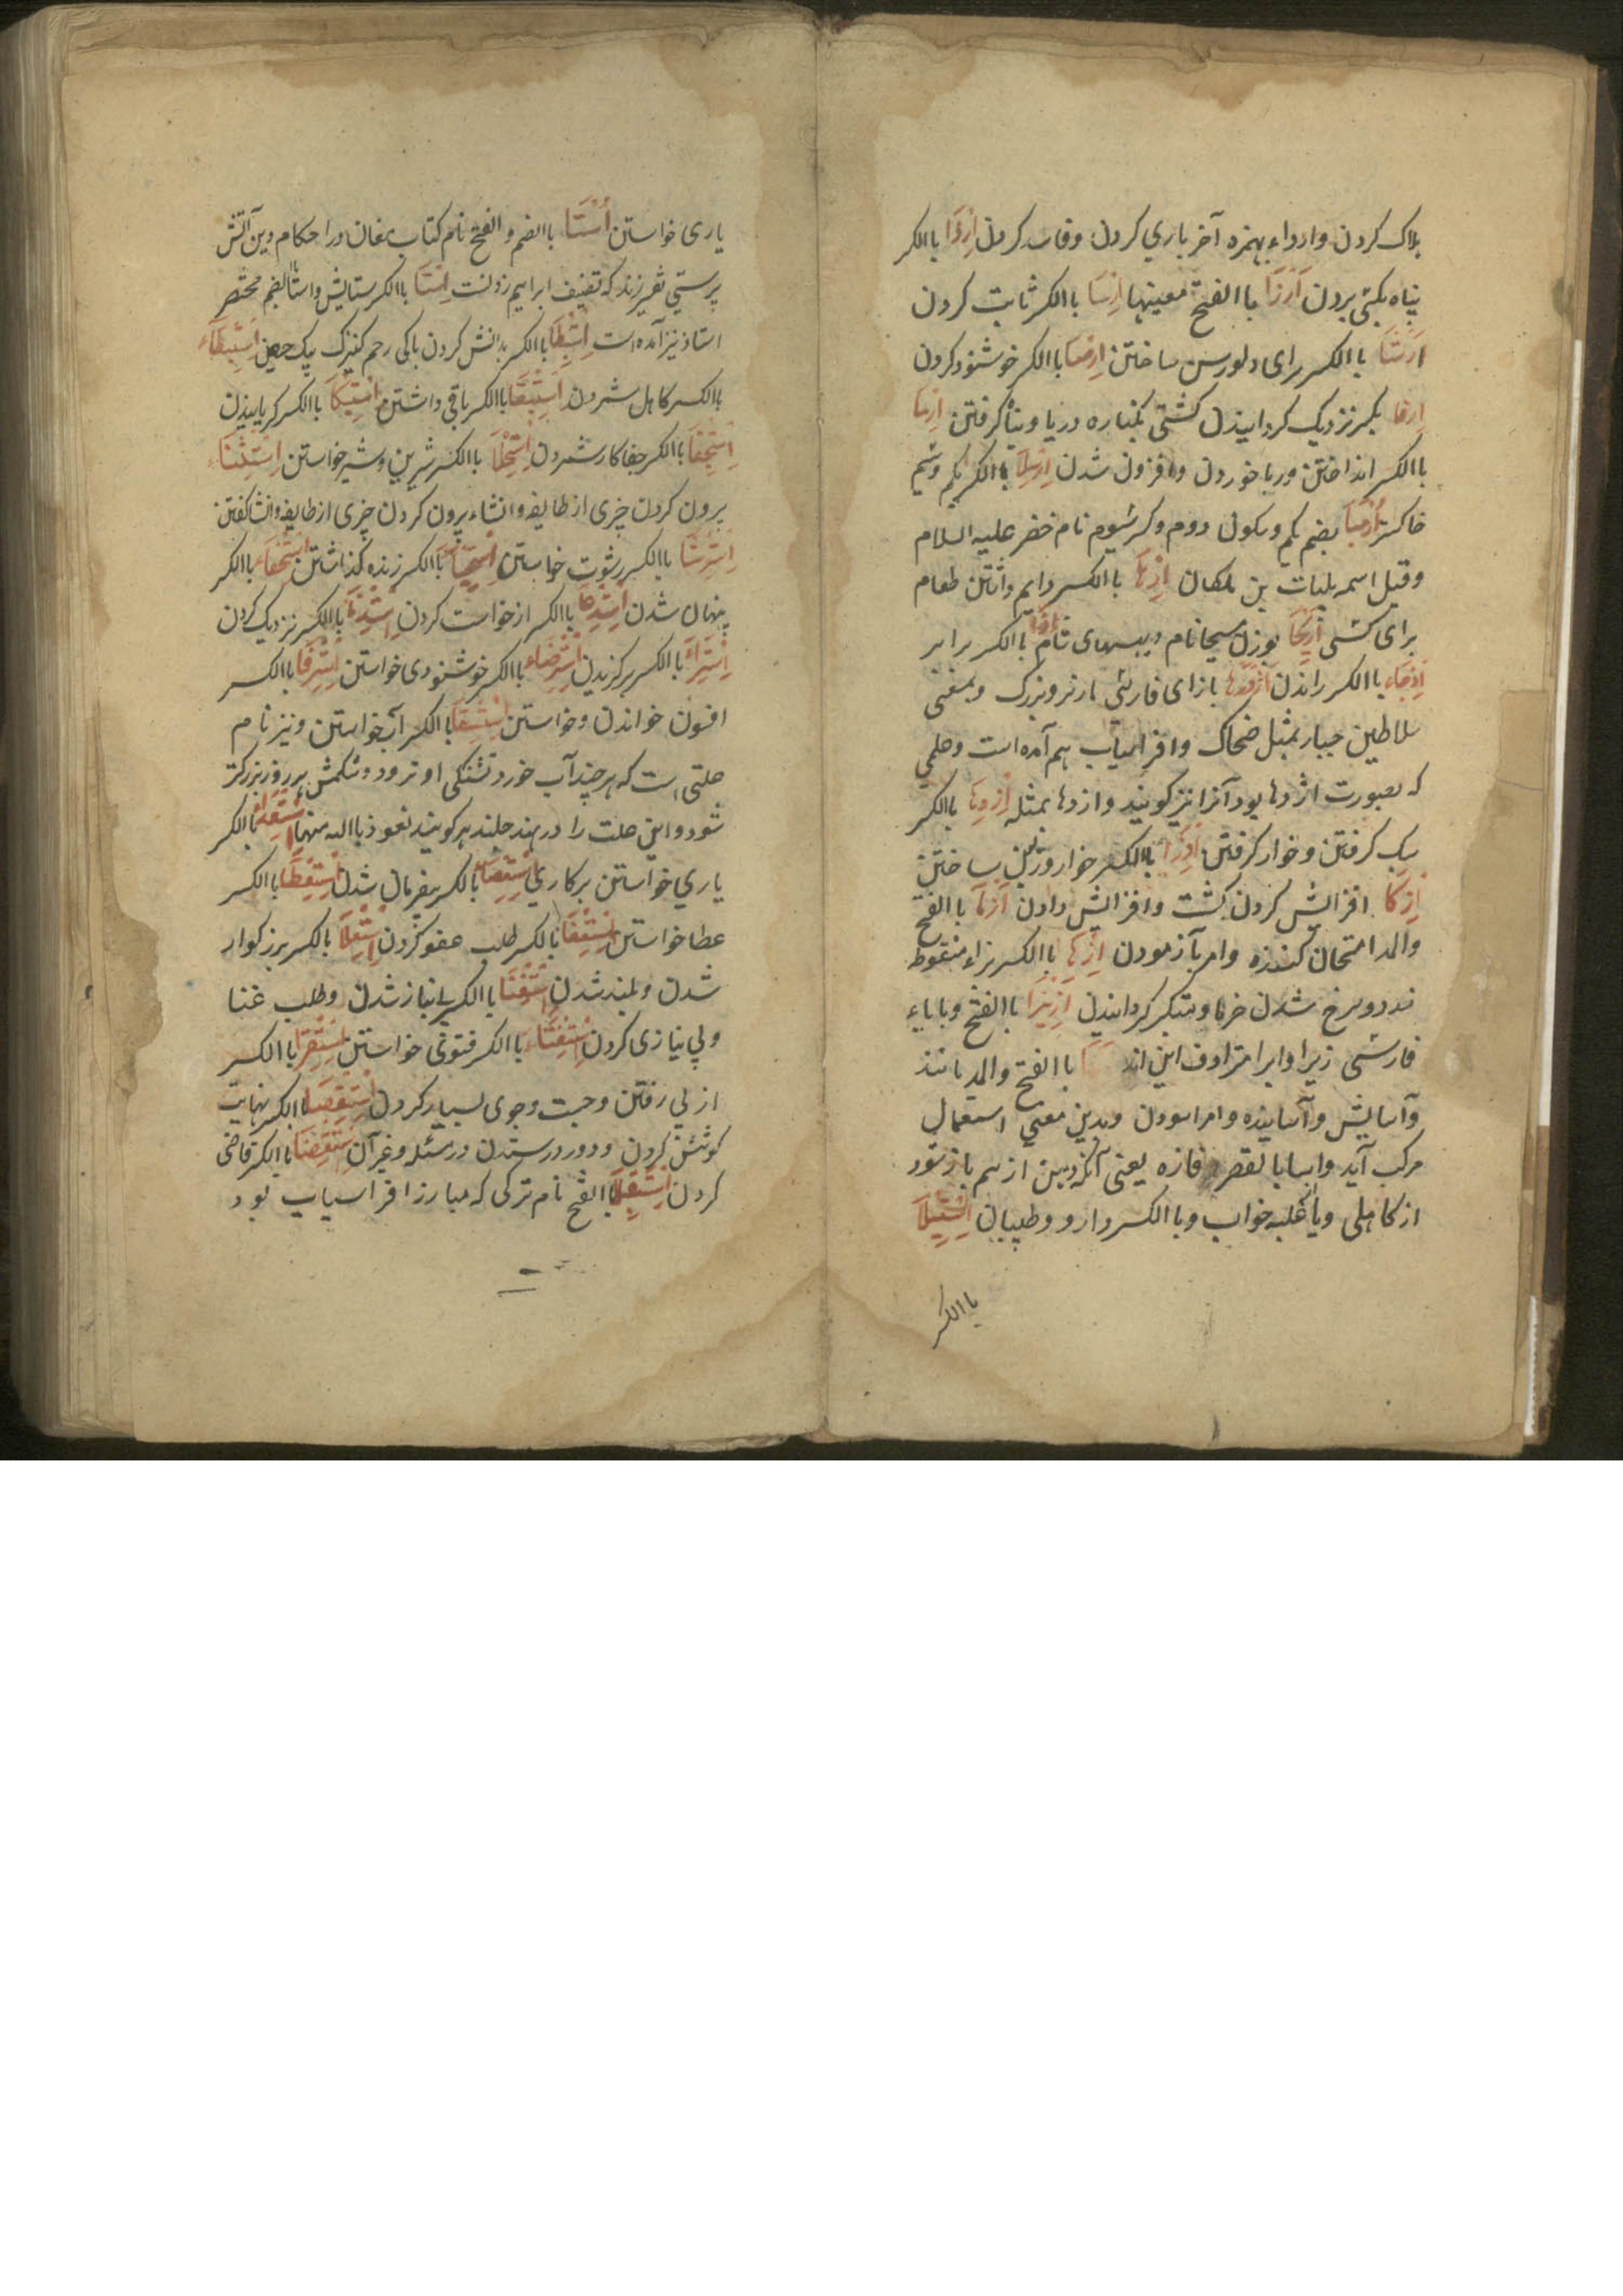 هلاک کردن وارداء بهمزه آخر یاری کردن وفاسد کردن اِرزَا باالکسر
پناه بکسی بردن اَرزَا باالفتح معینها اِرسَا باالکسر ثابت کردن
اَرشَا باالکسر برای دلو رسن ساختن اِرضَا باالکسر خوشنود کردن
اِرفا بکسر نزدیک کردانیدن کشتی بکناره دریا وپناه کرفتن اِرمَا
باالکسر انداختن وربا خوردن وافزون شدن باالکسر یکم وسیم
خاکستر بضم یکم وسکون دوم وکسر سیوم نام خضر علیه السلام
وقیل اسمه بلیات بن ملکان اِرهَا باالکسر دایم داشتن طعام
برای کسی اَرِیحَا بوزن مسیحا نام دیبیهای شام اِزَا باالکسر برابر
اِزجَاء باالکسر راندن اَژدها بازای فارسی مار نر وبزرک وبمعنی
سلاطین جبار بمثل ضحاک وافراسیاب هم آمده است وعلمی
که بصورت اژدها بود آنرا نیز کویند وازدها بمثله اِزدِهَا باالکسر
سبک کرفتن وخوار کرفتن اِزرَا باالکسر خوار وزبون ساختن
اِزکَا افزایش کردن کشت وافزایش دادن آزمَا باالفتح
والمد امتحان کننده وامر بآزمودن اِزهَا باالکسر بزاء منقوطه
زرد وسرخ شدن خرما ومتکبر کردانیدن اَزِیرَا باالفتح وبا یاء
فارسی زیرا وایرا مترادف این اند باالفتح والمد مانند
وآسایش وآساینده وامر اسودن وبدین معنی استعمال
مرکب آید واسا بالقصر فازه یعنی آنکه دهن از هم باز شود
از کاهلی ویا غلبه خواب وباالکسر دارو وطبیبان اِستِیلَا
باالکسر
یاری خواستن اُستَا باالضم والفتح نام کتاب مغان در احکام دین آتش
پرستی شرح زند که تصنیف ابراهیم زردشت اِستَا باالکسر ستایش واستا بالضم مختصر
استاذ نیز آمده است اِستِبطَا باالکسر بدانش کردن پاکی رحم کنیزک بیک حیض اِستِبطَاء
باالکسر کاهل شمردن اِستِبقَا باالکسر باقی داشتن اِستِبکَا باالکسر کریانیدن
اِستِجفَا باالکسر جفا کار شمردن اِستِحلَا باالکسر شیرین وشیر خواستن اِستِثنَاء
بیرون کردن چیزی از طایفه وانشاء بیرون کردن چیزی از طایفه وانشا کفتن
اِستِرشَا باالکسر رشوت خواستن اِستِحیَا باالکسر زنده کذاشتن اِستِخفَاء باالکسر
پنهان شدن اِستِدعَا باالکسر از خواست کردن اِستِدنَا باالکسر نزدیک کردن
اِستِرَاء باالکسر برکزیدن اِستِرضَاء باالکسر خوشنودی خواستن اِستِرقَا باالکسر
افسون خواندن وخواستن اِستِسقَا باالکسر آب خواستن ونیز نام
علتی است که هر چند آب خورد تشنکی او نرود وشکمش هر روز بزرکتر
شود واین علت را در هند جلندهر کویند نعوذ باالله منها باالکسر
یاری خواستن بر کاری اِستِعصَا باالکسر بیفرمان شدن اِستِعطَا باالکسر
عطا خواستن اِستِعفَا باالکسر طلب عفو کردن اِستِعلَا باالکسر بزرکوار
شدن وبلند شدن اِستِغنَا باالکسر بی نیاز شدن وطلب غنا
وبی نیازی کردن اِستِفتَاء باالکسر فتوی خواستن اِستِقرَا باالکسر
از پی رفتن وجست وجوی بسیار کردن اِستِقصَا باالکسر نهایت
کوشش کردن ودور در شدن در مسئله وغیر آن اِستِقضَا باالکسر قاضی
کردن باالفتح نام ترکی که مبارز افراسیاب بود